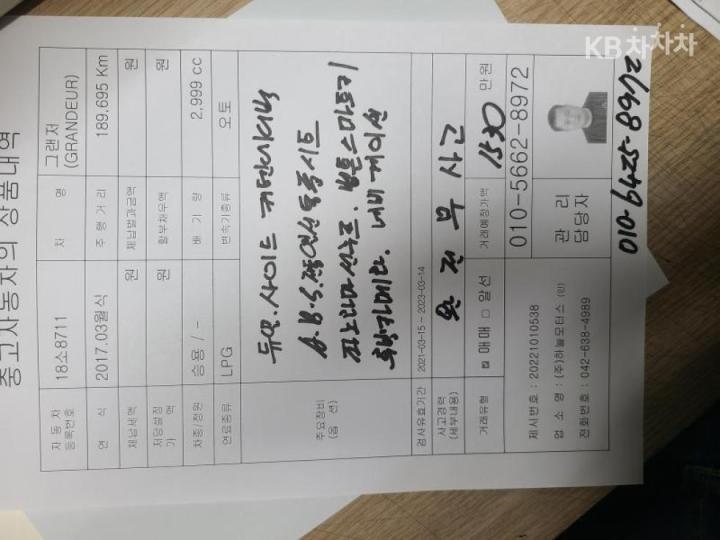 KB차차차
중고자동차의 상품내역
자동차등록번호 18소8711 차 명 그랜저(GRANDEUR)
연 식 2017.03월식 주행거리 189,695 Km
체납세액 원 체납벌과금액 원
저당설정가 액 원 할부채무액 원
차종/정원 승용 / - 배 기 량 2,999 cc
연료종류 LPG 변속기종류 오토
주요장비(옵 션)
듀얼.사이드 커턴에어백
A.B.S. 열선통풍시트
파노라마 선루프. 버튼스마트키
후방카메라. 네비게이션
검사유효기간 2021-03-15 ~ 2023-03-14
사고경력(세부내용) 완전무사고
거래유형 ☑ 매매 □ 알선 거래예정가액 1530 만원
제시번호 : 20221010538 010-5662-8972
업 소 명 : (주)하늘모터스 (인) 관 리 담당자
전화번호 : 042-638-4989
010-6425-8972